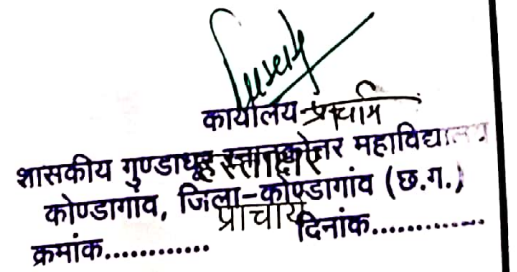 कार्यालय प्राचार्य
शासकीय गुण्डाधूर स्नातकोत्तर महाविद्यालय
हस्ताक्षर
कोण्डागांव, जिला-कोण्डागांव (छ.ग.)
प्राचार्य
क्रमांक............ दिनांक.............